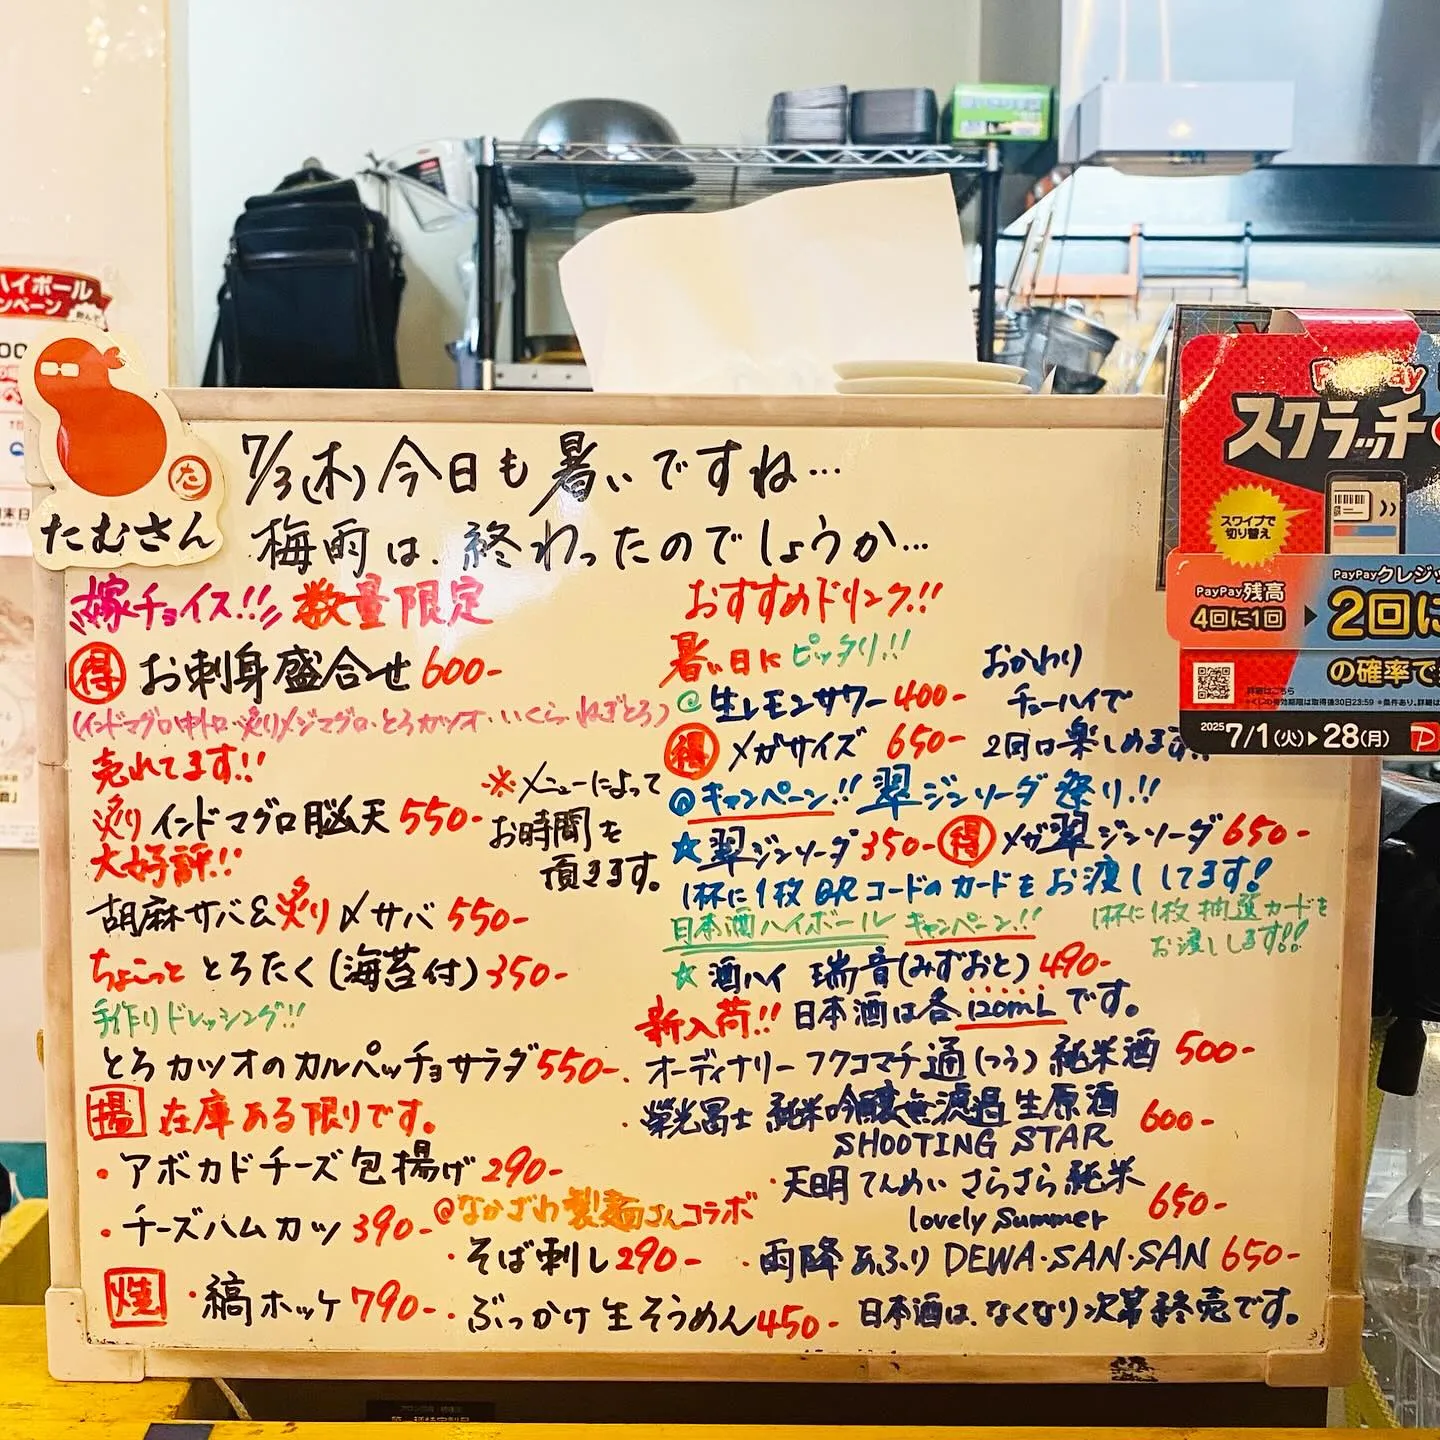 ハイボール
たむさん
た
7/3(木)今日も暑いですね…
梅雨は、終わったのでしょうか…
嫁チョイス!! 数量限定
得 お刺身盛合せ 600-
(インドマグロ中トロ・炙りメジマグロ・とろカツオ・いくら・ねぎとろ)
売れてます!!
炙りインドマグロ脳天 550-
※メニューによって
お時間を
頂きます。
大好評!!
胡麻サバ&炙り〆サバ 550-
ちょこっと とろたく(海苔付) 350-
手作りドレッシング!!
とろカツオのカルパッチョサラダ 550-
揚 在庫ある限りです。
・アボカドチーズ包揚げ 290-
・チーズハムカツ 390-
@なかざわ製麺さんコラボ
・そば刺し 290-
焼 ・縞ホッケ 790-
・ぶっかけ生そうめん 450-
おすすめドリンク!!
暑い日にピッタリ!!
@生レモンサワー 400-
得 メガサイズ 650-
おかわり
チューハイで
2回は楽しめます!!
@キャンペーン!! 翠ジンソーダ祭り!!
★翠ジンソーダ 350- 得 メガ翠ジンソーダ 650-
1杯に1枚QRコードのカードをお渡ししてます!
日本酒ハイボール キャンペーン!!
1杯に1枚抽選カードを
お渡しします!!
☆酒ハイ 瑞音(みずおと) 490-
新入荷!! 日本酒は各120mLです。
・オーディナリーフクコマチ通(つう)純米酒 500-
・榮光冨士 純米吟醸無濾過生原酒
SHOOTING STAR 600-
・天明 てんめい さらさら純米
lovely Summer 650-
・雨降 あふり DEWA・SAN・SAN 650-
日本酒は、なくなり次第終売です。
PayPay
スクラッチ
スワイプで
切り替え
PayPay残高
4回に1回
PayPayクレジッ
2回に
の確率で
詳細はこちら
2025 7/1(火)▶28(月)